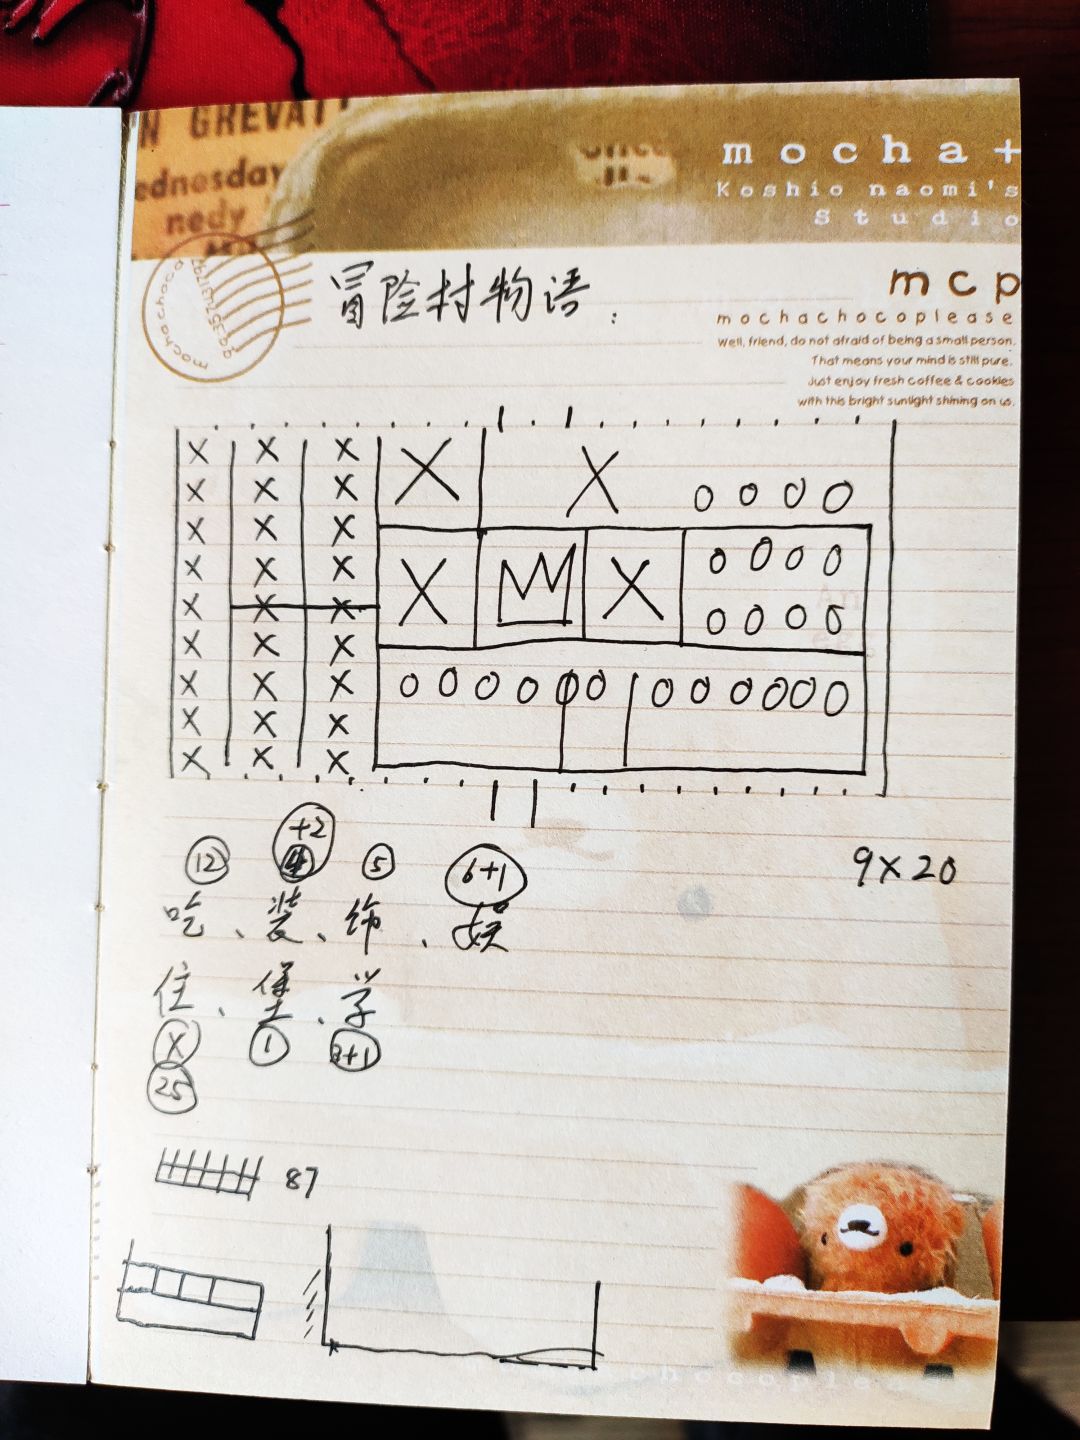 N GREVAT
ednesday
nedy
mocha+
Koshio naomi's
Studio
mochachoca
冒险村物语:
mcp
mochachocoplease
Well, friend, do not afraid of being a small person.
That means your mind is still pure.
Just enjoy fresh coffee & cookies
with this bright sunlight shining on us.
X X X X X O O O O
X X X
X X X
X X X X X O O O O
X X X O O O O
X X X
X X X O O O O O O O O O O O O
X X X
X X X
+2
12 4 5 6+1
9X20
吃、装、饰、娱
住、堡、学
X 1 3+1
25
87